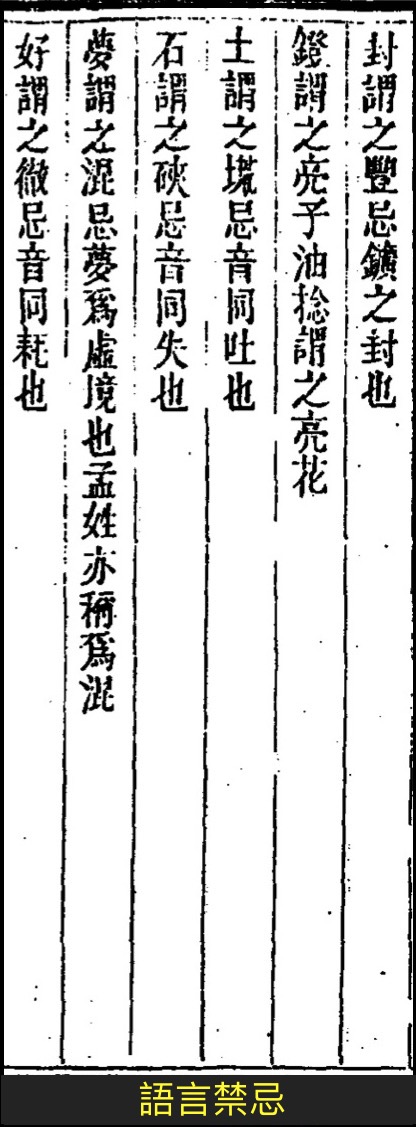 封謂之豐忌鑛之封也
鐙謂之亮子油捻謂之亮花
土謂之塃忌音同吐也
石謂之硤忌音同失也
夢謂之混忌夢爲虛境也孟姓亦稱爲混
好謂之徹忌音同耗也
語言禁忌